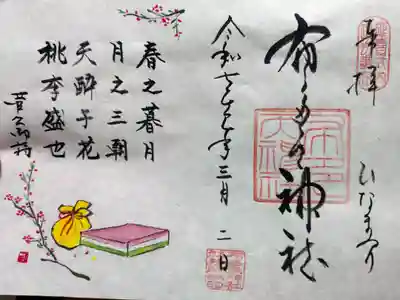 奉拝
ひなまつり
布多天神社
令和七年三月二日
春之暮月
月之三朝
天酔于花
桃李盛也